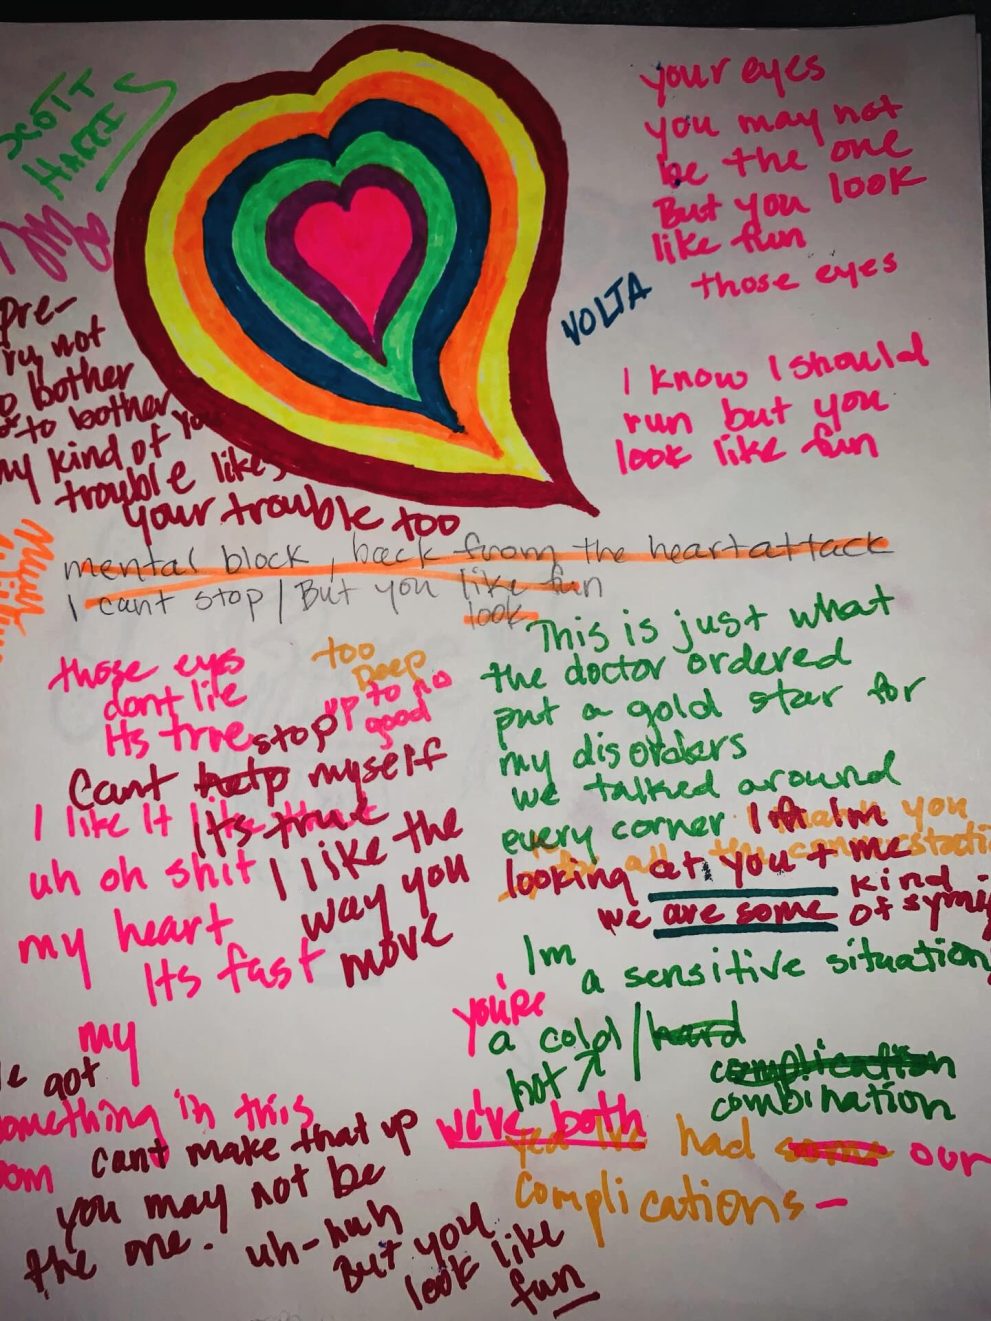 SCOTT
HARRIS
your eyes
you may not
be the one
But you look
like fun
those eyes
VOLTA
I know I should
run but you
look like fun
Pre-
Try not
to bother
to bother
my kind of
trouble likes
your trouble too
mental block, back from the heartattack
I cant stop / But you like fun
look
those eyes
dont lie
Its true
too
Deep
up to no
good
stop
Cant help myself
I like It
Its true
uh oh shit
I like the
way you
move
my heart
Its fast
my
got
something in this
cant make that up
you may not be
the one.
uh-huh
But you
look like
fun
This is just what
the doctor ordered
put a gold star for
my disorders
we talked around
every corner
looking at you + me
we are some kind
of
Im
a sensitive situation
you're
a cold / hard
hot
complication
combination
we've both
had some our
complications -